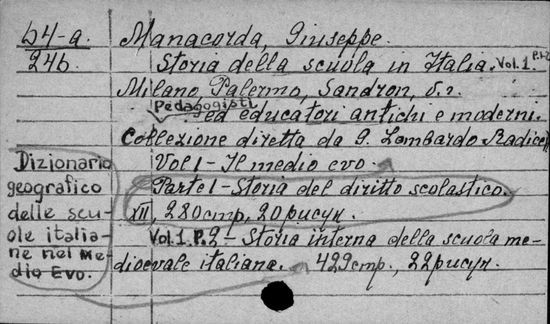 b4-a. Manacorda, Giuseppe.
246 Storia della scuola in Italia. Vol.1. P.1-2
Milano, Palermo, Sandron, s.a.
Pedagogisti
ed educatori antichi e moderni.
Collezione diretta da G. Lombardo Radice
Vol 1 - Il medio evo.
Parte 1 - Storia del diritto scolastico.
XII, 280 стр, 20 рисун.
Vol.1. P.2 - Storia interna della scuola me-
dioevale italiana. 429 стр., 22 рисун.
Dizionario
geografico
delle scu-
ole italia-
ne nel Me-
dio Evo.